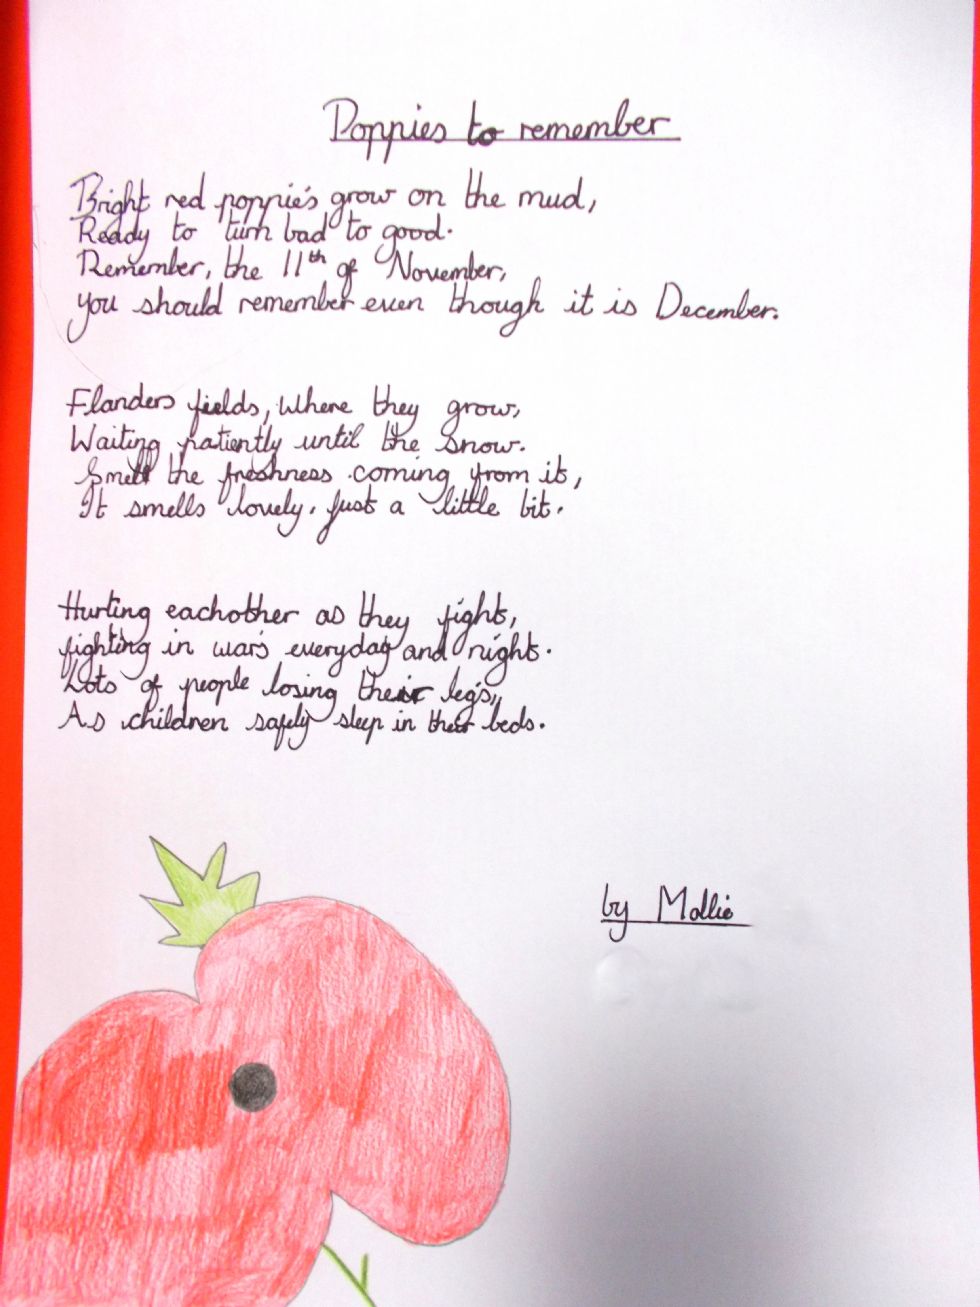 Poppies to remember
Bright red poppie's grow on the mud,
Ready to turn bad to good.
Remember, the 11th of November,
you should remember even though it is December.
Flanders fields, where they grow,
Waiting patiently until the snow.
Smell the freshness coming from it,
It smells lovely, just a little bit.
Hurting eachother as they fight,
fighting in war's everyday and night.
Lots of people losing their leg's,
As children safely sleep in their beds.
by Mollie